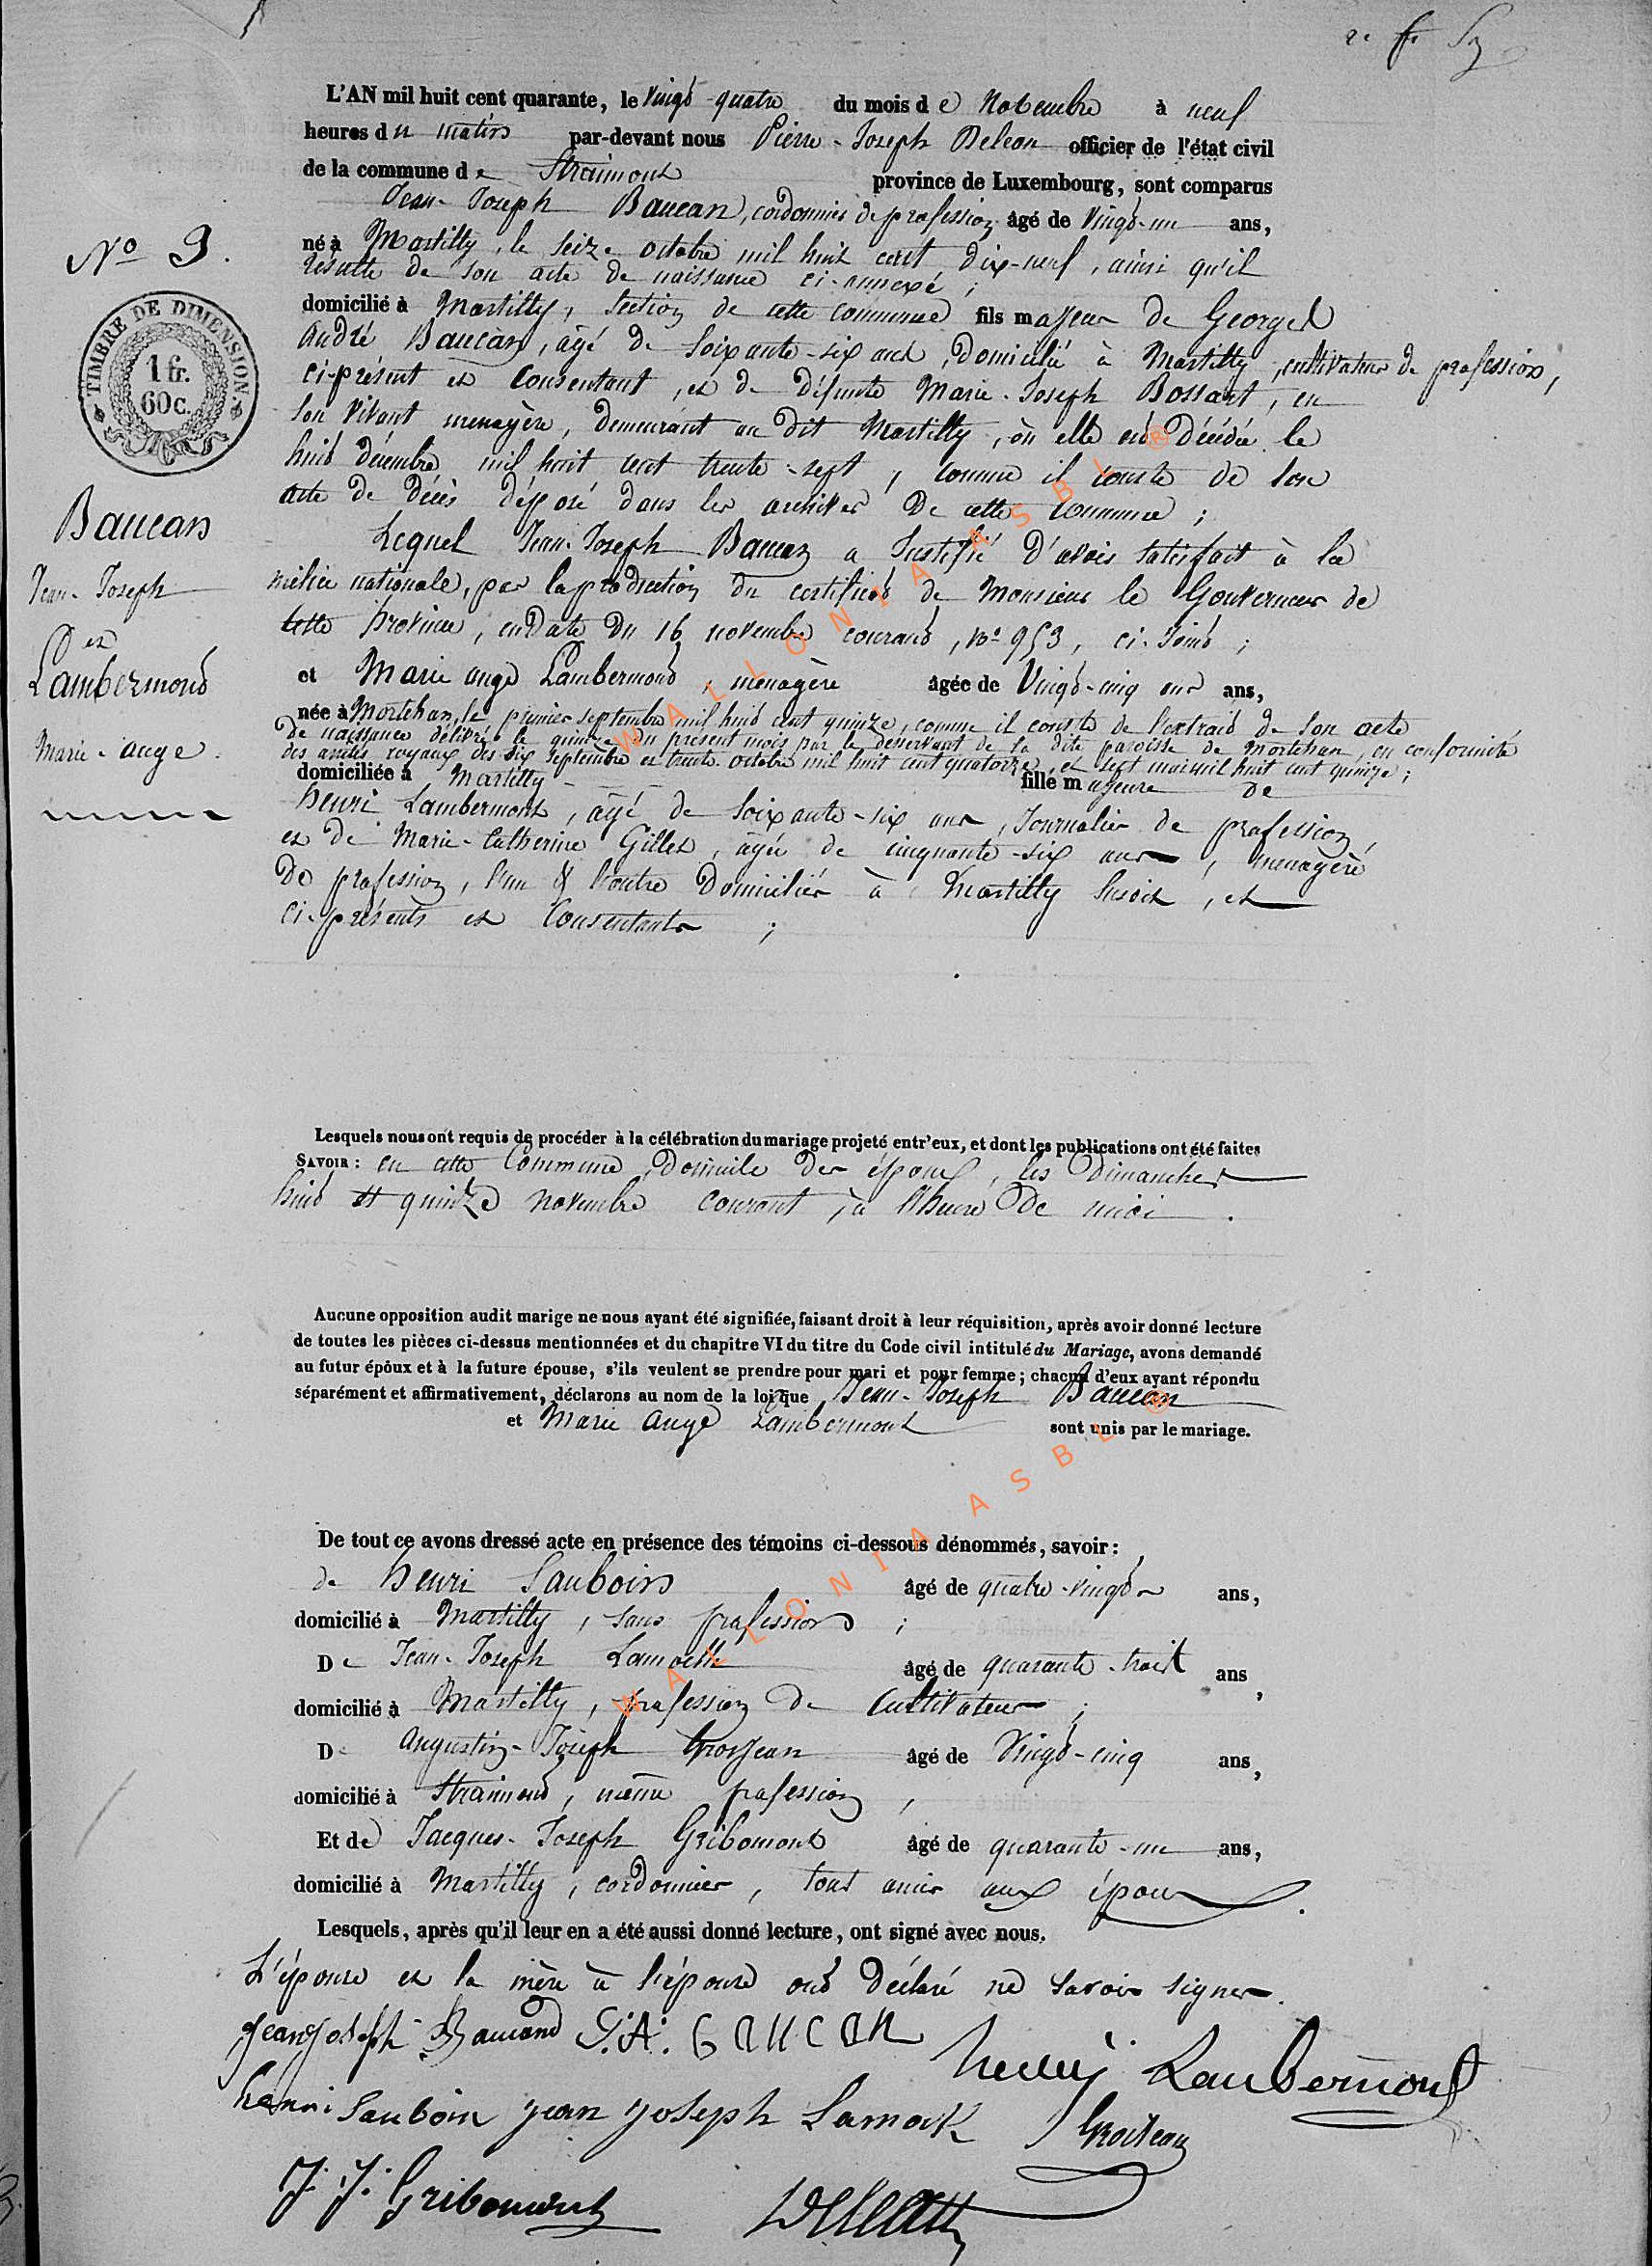 L'AN mil huit cent quarante, le vingt-quatre du mois de Novembre à neuf
heures du matin par-devant nous Pierre-Joseph officier de l'état civil
de la commune de Straimont province de Luxembourg, sont comparus
Jean-Joseph Baucan, cordonnier de profession âgé de vingt-un ans,
né à Martilly, le seize octobre mil huit cent dix-neuf, ainsi qu'il
résulte de son acte de naissance ci-annexé;
domicilié à Martilly, section de cette commune fils majeur de Georges
André Baucan, âgé de soixante-six ans, domicilié à Martilly, cultivateur de profession,
ci-présent et consentant, et de défunte Marie-Joseph Bossart, en
son vivant menagère, demeurant au dit Martilly, où elle est décédée le
huit décembre mil huit cent trente-sept, comme il conste de son
acte de décès déposé dans les archives de cette commune;
Lequel Jean-Joseph Baucan a justifié d'avoir satisfait à la
milice nationale, par la production du certificat de Monsieur le Gouverneur de
cette Province, en date du 16 novembre courant, no 953, ci-joint;
et Marie ange Lambermont, menagère âgée de vingt-cinq ans ans,
née à Mortehan, le premier septembre mil huit cent quinze, comme il conste de l'extrait de son acte
de naissance délivré le quinze du présent mois par le desservant de la dite paroisse de Mortehan, en conformité
des arrêtés royaux des six septembre et trente octobre mil huit cent quatorze, et sept mai mil huit cent quinze;
domiciliée à Martilly fille majeure de
henri Lambermont, âgé de soixante-six ans, journalier de profession,
et de Marie-Catherine Gilles, âgée de cinquante-six ans, menagère
de profession, l'un & l'autre domiciliés à Martilly susdit, et
ci-présents et consentants;
No 9.
TIMBRE DE DIMENSION.
1 fr.
60 c.
Baucan
Jean-Joseph
et
Lambermont
Marie-ange.
Lesquels nous ont requis de procéder à la célébration du mariage projeté entr'eux, et dont les publications ont été faites
SAVOIR: en cette commune, domicile des époux, les Dimanches
huit et quinze novembre courant, à l'heure de midi.
Aucune opposition audit marige ne nous ayant été signifiée, faisant droit à leur réquisition, après avoir donné lecture
de toutes les pièces ci-dessus mentionnées et du chapitre VI du titre du Code civil intitulé du Mariage, avons demandé
au futur époux et à la future épouse, s'ils veulent se prendre pour mari et pour femme; chacun d'eux ayant répondu
séparément et affirmativement, déclarons au nom de la loi que Jean-Joseph Baucan
et Marie Ange Lambermont sont unis par le mariage.
De tout ce avons dressé acte en présence des témoins ci-dessous dénommés, savoir:
de henri Sauboin âgé de quatre-vingts ans,
domicilié à Martilly, sans profession;
De Jean-Joseph Lamock âgé de quarante-trois ans,
domicilié à Martilly, profession de cultivateur;
De Augustin-Joseph Grosjean âgé de vingt-cinq ans,
domicilié à Straimont, même profession,
Et de Jacques-Joseph Gribomont âgé de quarante-un ans,
domicilié à Martilly, cordonnier, tous amis aux époux.
Lesquels, après qu'il leur en a été aussi donné lecture, ont signé avec nous.
L'épouse et la mère à l'épouse ont déclaré ne savoir signer.
jean joseph Baucand G.A. BAUCAN
henri Lambermont
henri Sauboin jean joseph Lamock
J. J. Gribomont
WALLONIA ASBL ®
WALLONIA ASBL ®